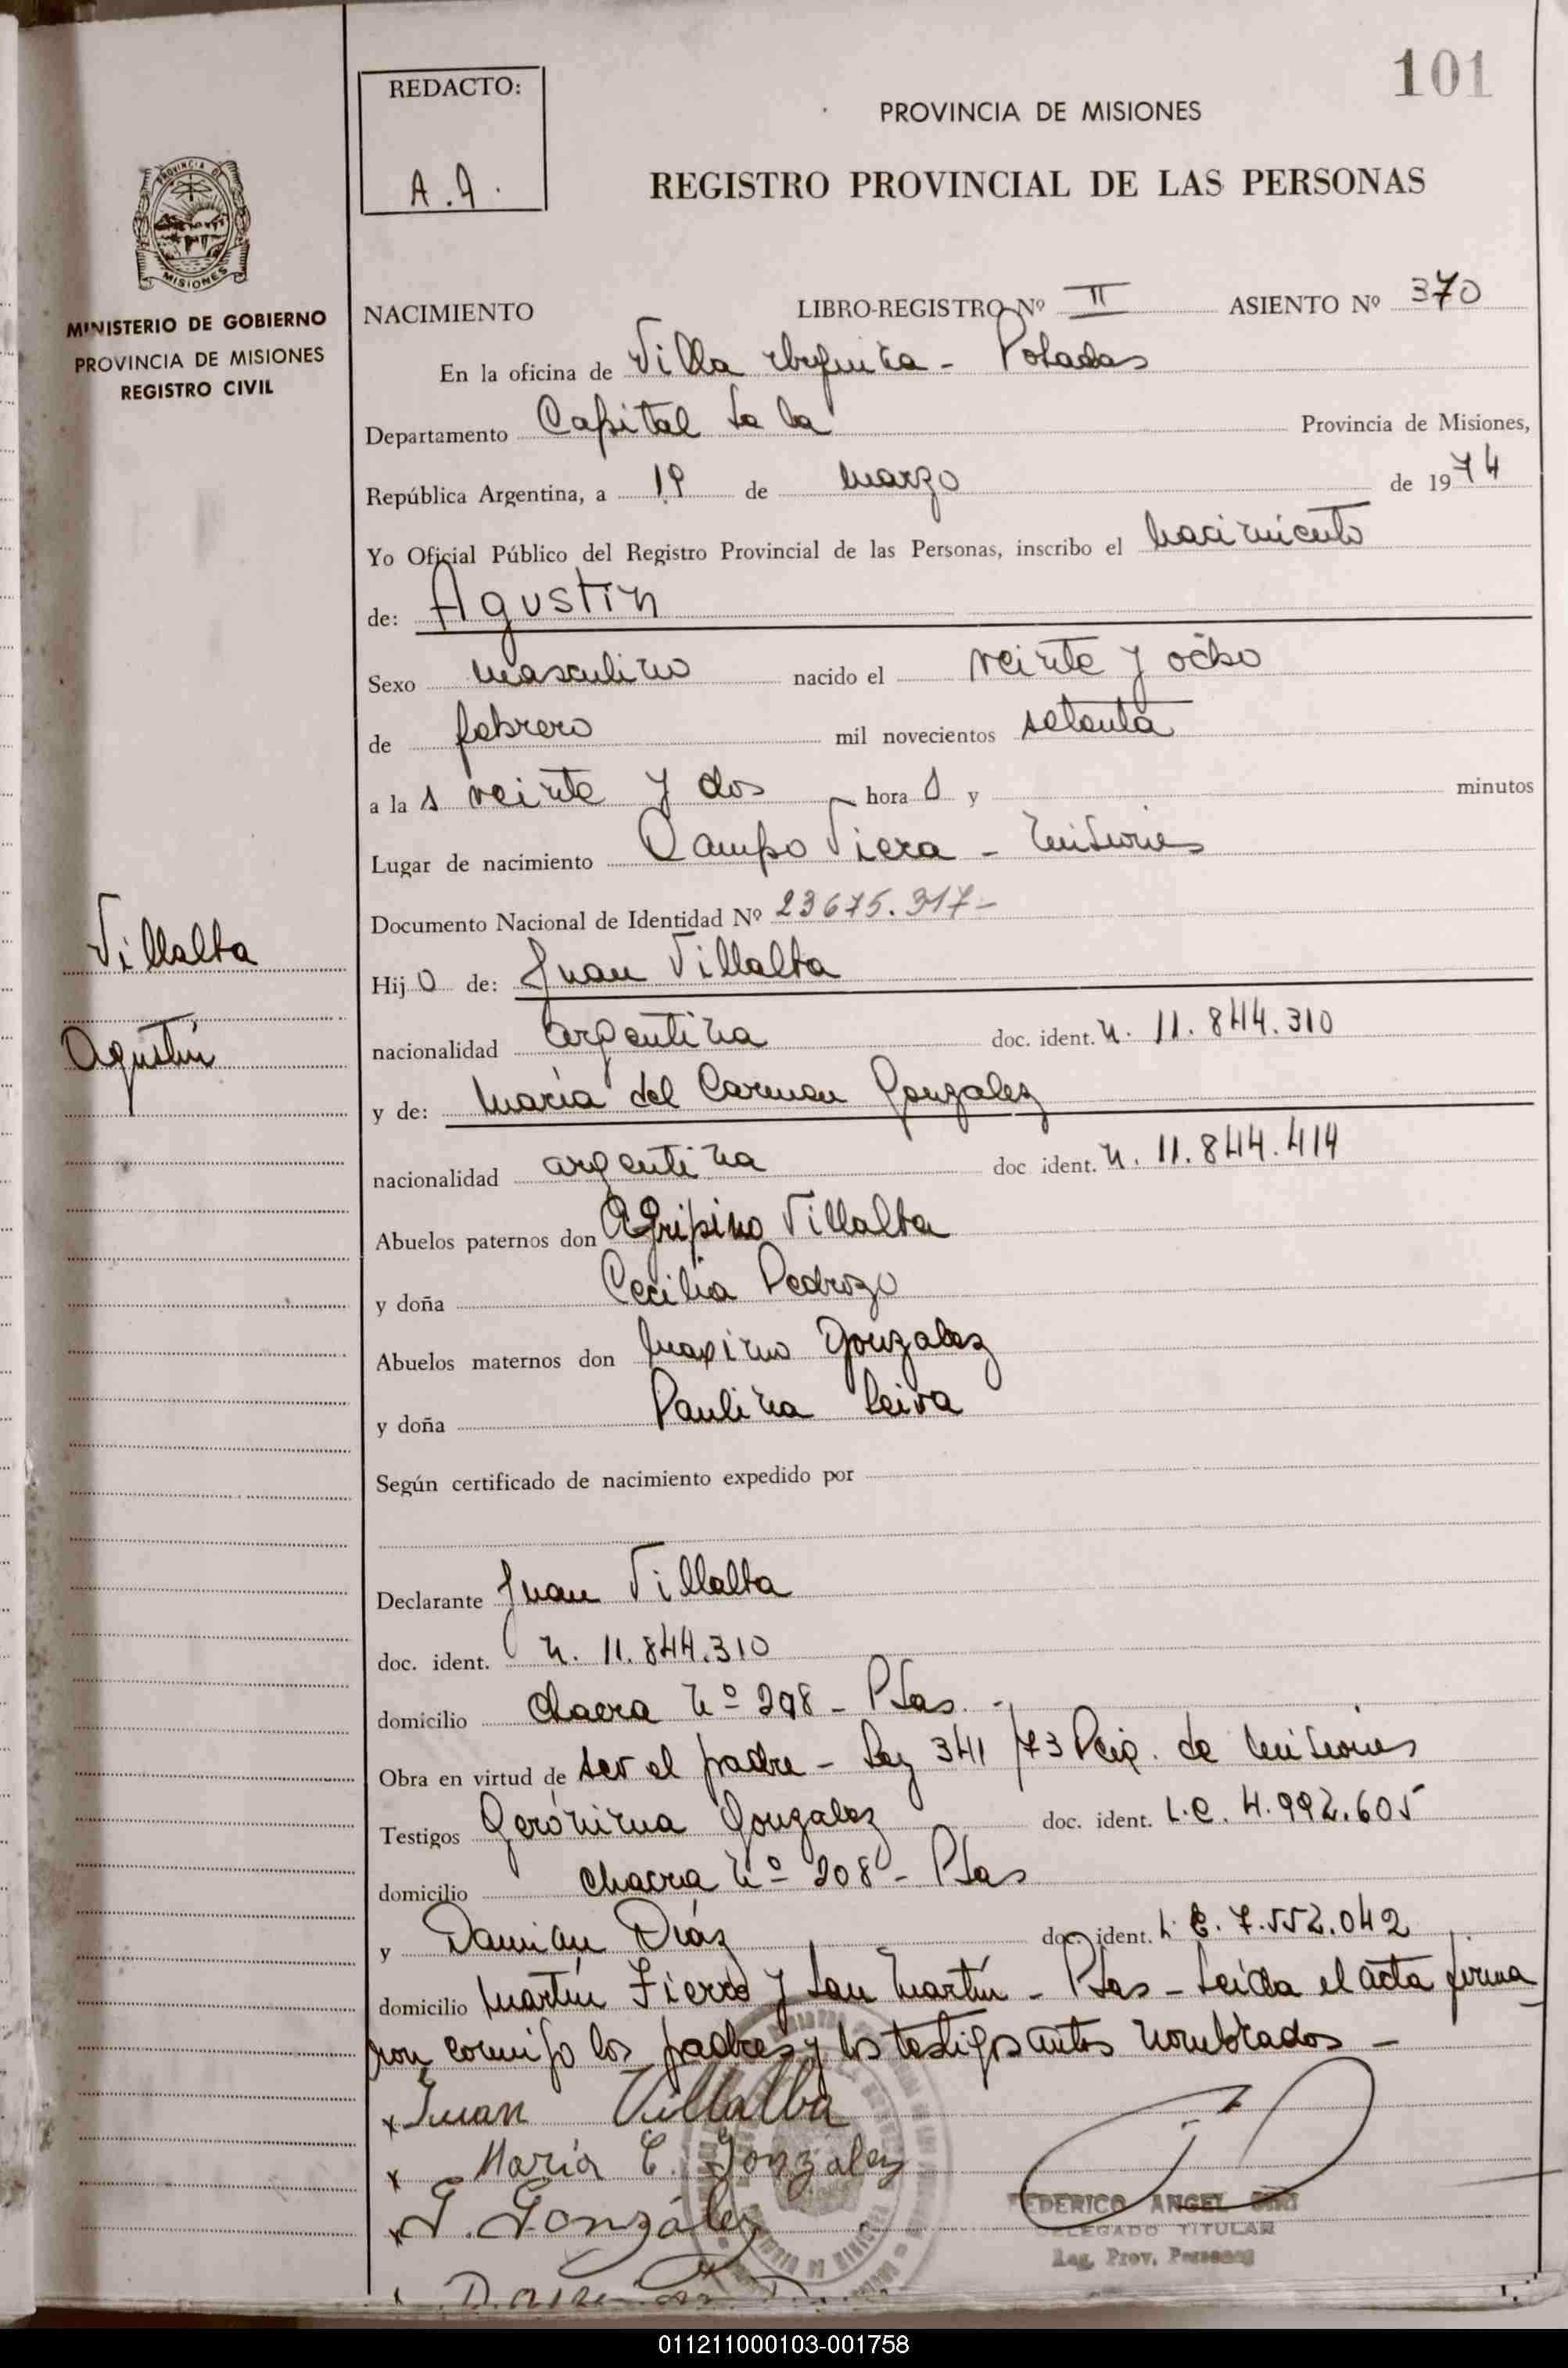 101
REDACTO:
A.A.
PROVINCIA DE MISIONES
REGISTRO PROVINCIAL DE LAS PERSONAS
PROVINCIA DE
MISIONES
MINISTERIO DE GOBIERNO
PROVINCIA DE MISIONES
REGISTRO CIVIL
NACIMIENTO LIBRO-REGISTRO Nº II ASIENTO Nº 370
En la oficina de Villa Urquiza - Posadas
Departamento Capital de la Provincia de Misiones,
República Argentina, a 19 de marzo de 1974
Yo Oficial Público del Registro Provincial de las Personas, inscribo el nacimiento
de: Agustín
Sexo masculino nacido el veinte y ocho
de febrero mil novecientos setenta
a la s veinte y dos hora s y minutos
Lugar de nacimiento Campo Viera - Misiones
Documento Nacional de Identidad Nº 23675.317-
Villalba
Agustín
Hij o de: Juan Villalba
nacionalidad argentina doc. ident. n. 11.844.310
y de: María del Carmen Gonzalez
nacionalidad argentina doc ident. n. 11.844.414
Abuelos paternos don Agripino Villalba
y doña Cecilia Pedrozo
Abuelos maternos don Maximo Gonzalez
y doña Paulina Leiva
Según certificado de nacimiento expedido por
Declarante Juan Villalba
doc. ident. n. 11.844.310
domicilio chacra nº 208 - Psas. -
Obra en virtud de ser el padre - Ley 341/73 de Misiones
Testigos Gerónima Gonzalez doc. ident. L.C. 4.992.605
domicilio chacra nº 208 - Psas
y Damian Díaz doc ident. L.E. 7.552.042
domicilio Martín Fierro y San Martín - Psas - Leida el acta firma
ron conmigo los padres y los testigos antes nombrados -
x Juan Villalba
x María C. González
x G. González
x Damian D
FEDERICO ANGEL
DELEGADO TITULAR
Reg. Prov. Personas
011211000103-001758